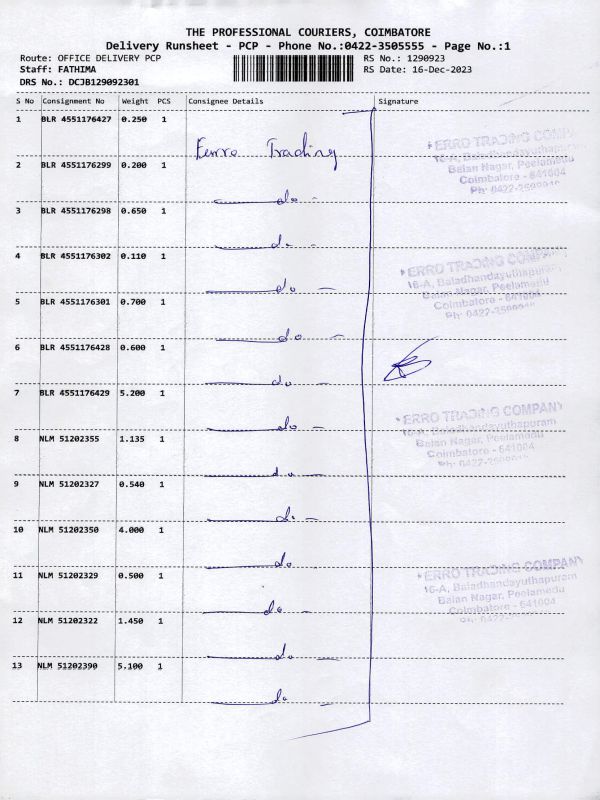 THE PROFESSIONAL COURIERS, COIMBATORE
Delivery Runsheet - PCP - Phone No.:0422-3505555 - Page No.:1
Route: OFFICE DELIVERY PCP
RS No.: 1290923
Staff: FATHIMA
RS Date: 16-Dec-2023
DRS No.: DCJB129092301
S No Consignment No Weight PCS Consignee Details Signature
1 BLR 4551176427 0.250 1
Ferro Trading
ERRO TRADING COMP
16-A, Baladhandayuthapu
Balan Nagar, Peelamedu
Coimbatore - 641004
Ph: 0422-
2 BLR 4551176299 0.200 1
do -
3 BLR 4551176298 0.650 1
do -
4 BLR 4551176302 0.110 1
do -
ERRO TRADING COMPA
16-A, Baladhandayuthapura
Balan Nagar, Peelamedu
Coimbatore - 641004
Ph: 0422-
5 BLR 4551176301 0.700 1
do -
6 BLR 4551176428 0.600 1
do -
7 BLR 4551176429 5.200 1
do -
ERRO TRADING COMPANY
16-A, Baladhandayuthapuram
Balan Nagar, Peelamedu
Coimbatore - 641004
Ph: 0422-
8 NLM 51202355 1.135 1
do -
9 NLM 51202327 0.540 1
do -
10 NLM 51202350 4.000 1
do
11 NLM 51202329 0.500 1
do -
ERRO TRADING COMPANY
16-A, Baladhandayuthapuram
Balan Nagar, Peelamedu
Coimbatore - 641004
Ph: 0422-
12 NLM 51202322 1.450 1
do -
13 NLM 51202390 5.100 1
do -